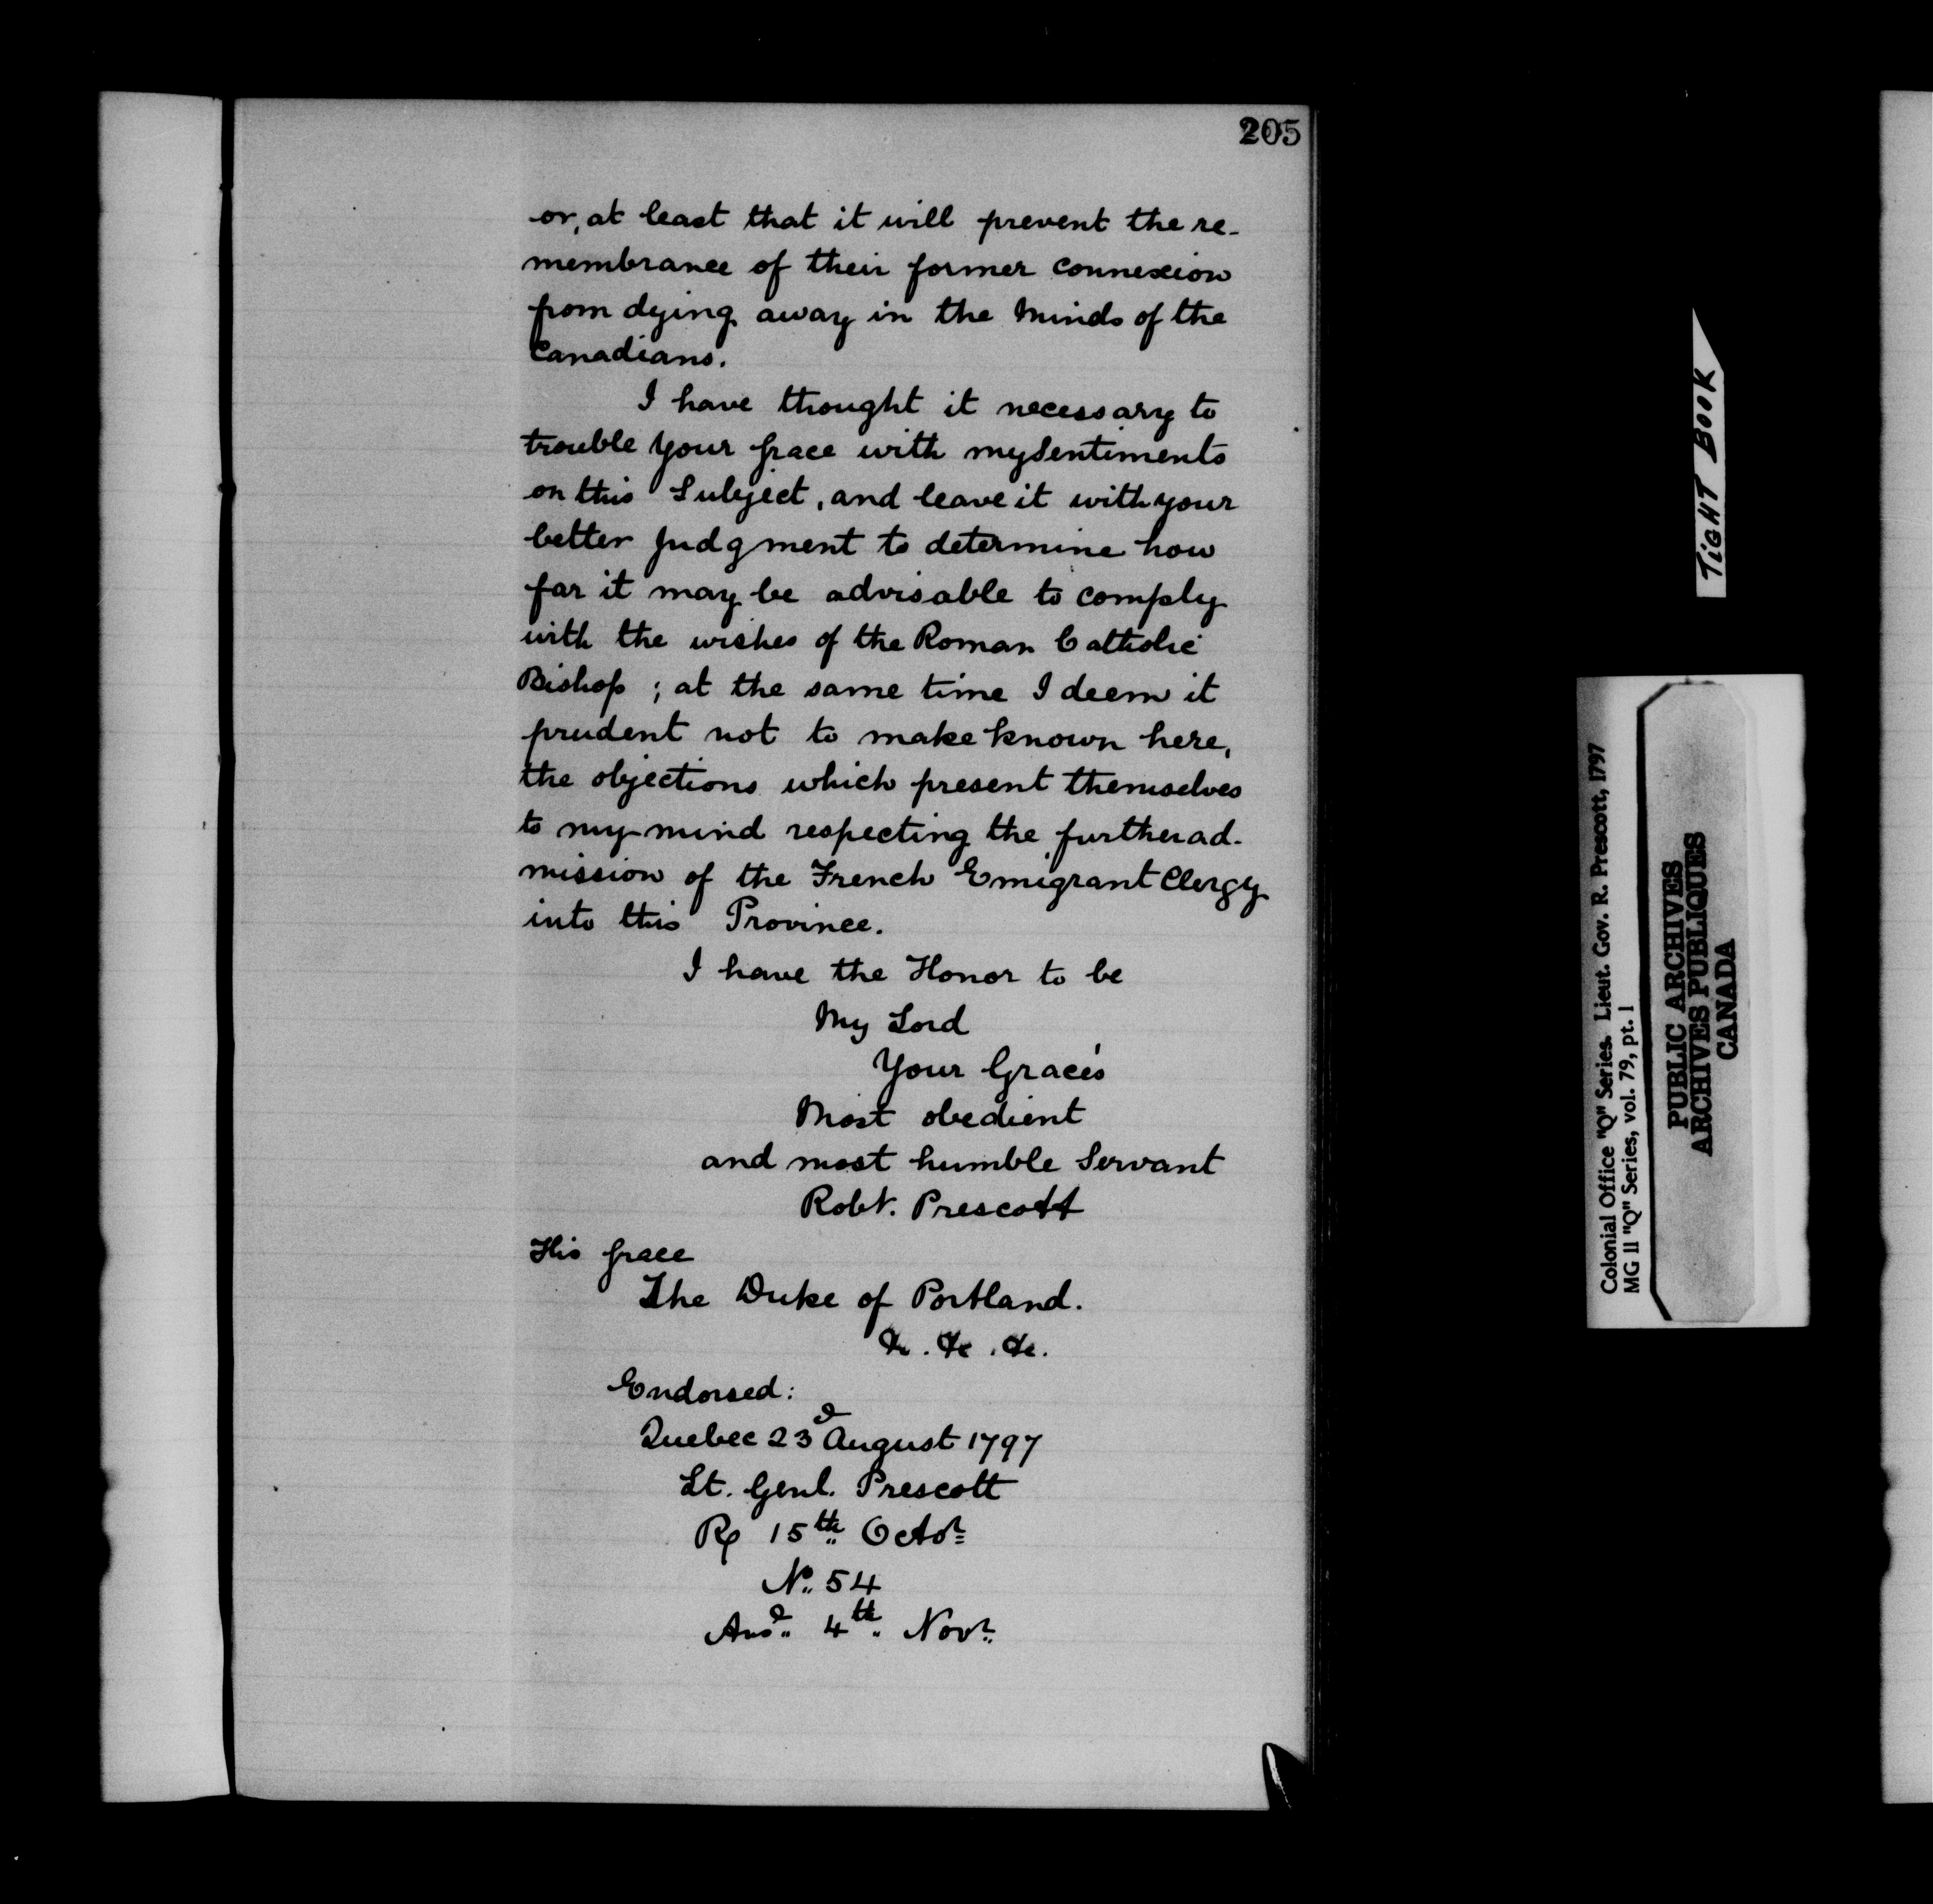 205
or, at least that it will prevent the re-
membrance of their former connexion
from dying away in the Minds of the
Canadians.
I have thought it necessary to
trouble Your Grace with my Sentiments
on this Subject, and leave it with your
better Judgment to determine how
far it may be advisable to comply
with the wishes of the Roman Catholic
Bishop; at the same time I deem it
prudent not to make known here,
the objections which present themselves
to my mind respecting the further ad-
mission of the French Emigrant Clergy
into this Province.
I have the Honor to be
My Lord
Your Grace's
Most obedient
and most humble Servant
Robt. Prescott
His Grace
The Duke of Portland.
&c. &c. &c.
Endorsed:
Quebec 23d August 1797
Lt. Genl. Prescott
Rx 15th Octor
No. 54
Ansd. 4th. Novr.
TIGHT BOOK
Colonial Office "Q" Series. Lieut. Gov. R. Prescott, 1797
MG 11 "Q" Series, vol. 79, pt. 1
PUBLIC ARCHIVES
ARCHIVES PUBLIQUES
CANADA